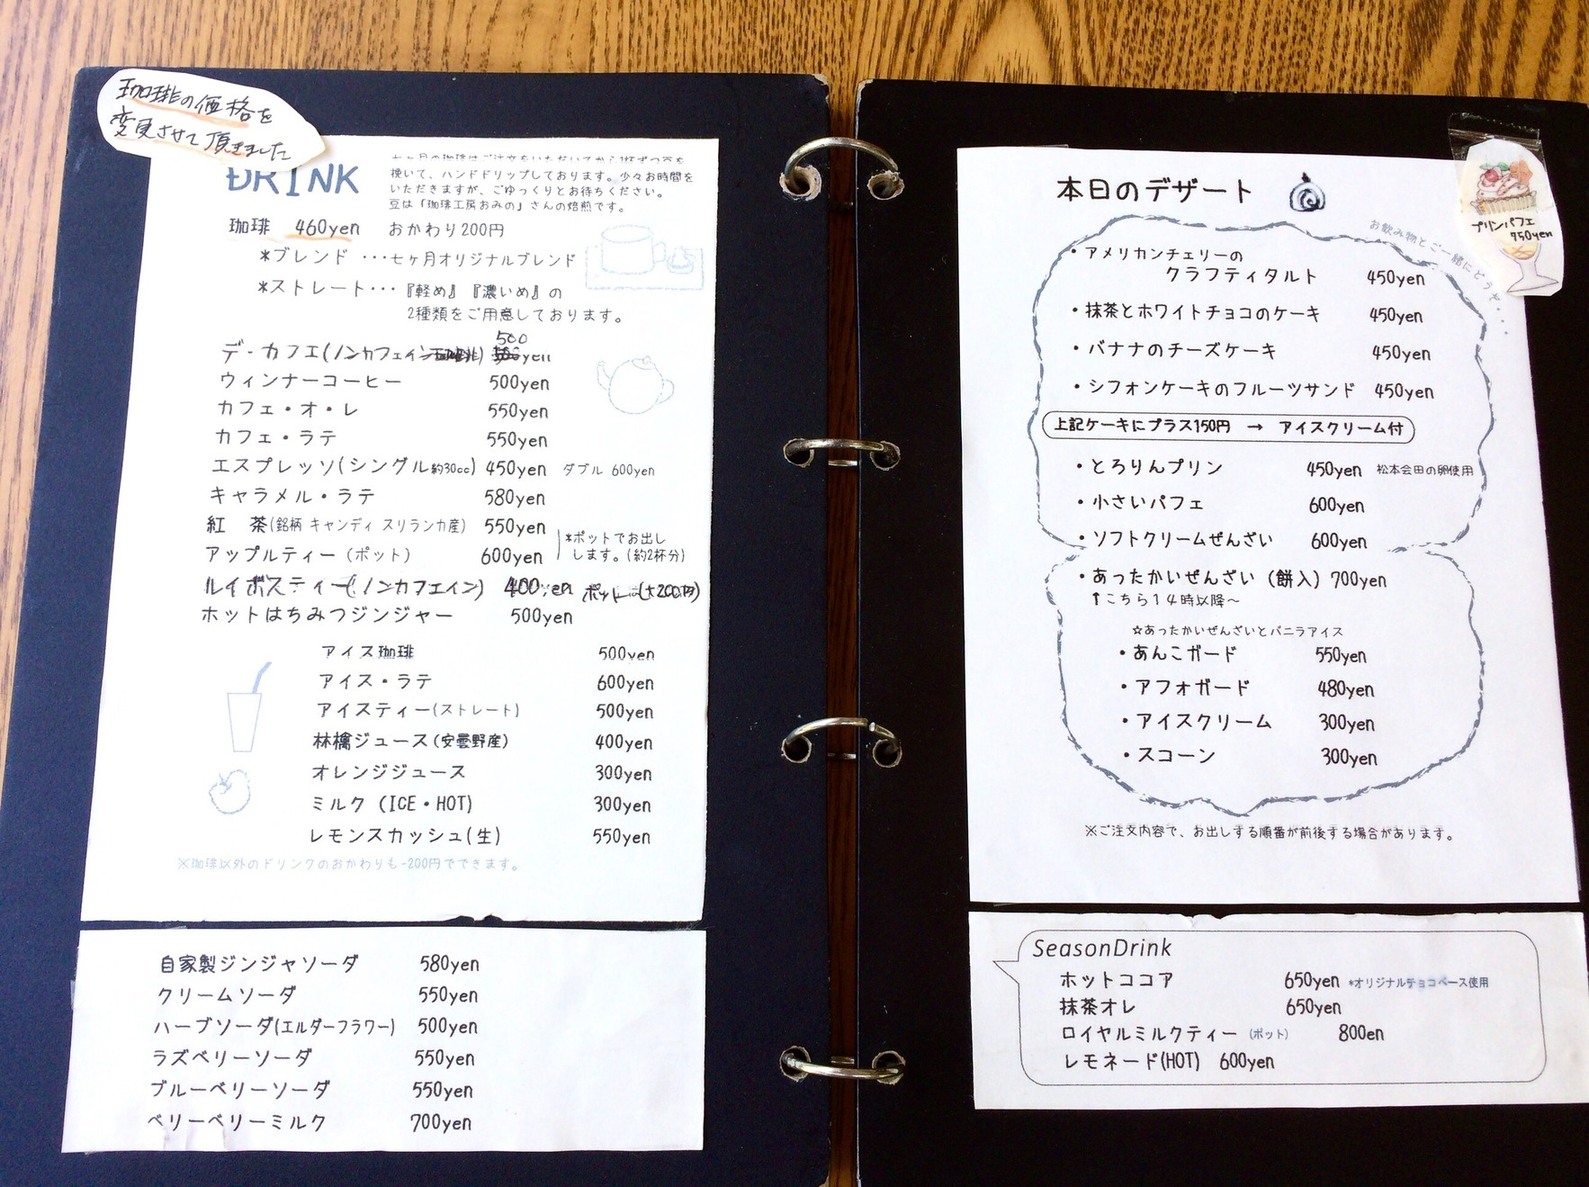 珈琲の価格を
変更させて頂きました
DRINK
七ヶ月の珈琲はご注文をいただいてから1杯ずつ豆を
挽いて、ハンドドリップしております。少々お時間を
いただきますが、ごゆっくりとお待ちください。
豆は「珈琲工房おみの」さんの焙煎です。
珈琲 460yen おかわり200円
*ブレンド ・・・七ヶ月オリジナルブレンド
*ストレート・・・『軽め』『濃いめ』の
2種類をご用意しております。
500
デ・カフェ(ノンカフェイン珈琲) yen
ウィンナーコーヒー 500yen
カフェ・オ・レ 550yen
カフェ・ラテ 550yen
エスプレッソ(シングル約30cc) 450yen ダブル 600yen
キャラメル・ラテ 580yen
紅 茶(銘柄 キャンディ スリランカ産) 550yen
アップルティー(ポット) 600yen
*ポットでお出し
します。(約2杯分)
ルイボスティー(ノンカフェイン) 400yen ポット(+200円)
ホットはちみつジンジャー 500yen
アイス珈琲 500yen
アイス・ラテ 600yen
アイスティー(ストレート) 500yen
林檎ジュース(安曇野産) 400yen
オレンジジュース 300yen
ミルク (ICE・HOT) 300yen
レモンスカッシュ(生) 550yen
※珈琲以外のドリンクのおかわりも-200円でできます。
自家製ジンジャソーダ 580yen
クリームソーダ 550yen
ハーブソーダ(エルダーフラワー) 500yen
ラズベリーソーダ 550yen
ブルーベリーソーダ 550yen
ベリーベリーミルク 700yen
本日のデザート
プリンパフェ
750yen
お飲み物とご一緒にどうぞ・・・
・アメリカンチェリーの
クラフティタルト 450yen
・抹茶とホワイトチョコのケーキ 450yen
・バナナのチーズケーキ 450yen
・シフォンケーキのフルーツサンド 450yen
上記ケーキにプラス150円 → アイスクリーム付
・とろりんプリン 450yen 松本会田の卵使用
・小さいパフェ 600yen
・ソフトクリームぜんざい 600yen
・あったかいぜんざい (餅入) 700yen
↑こちら14時以降~
☆あったかいぜんざいとバニラアイス
・あんこガード 550yen
・アフォガード 480yen
・アイスクリーム 300yen
・スコーン 300yen
※ご注文内容で、お出しする順番が前後する場合があります。
SeasonDrink
ホットココア 650yen *オリジナルチョコベース使用
抹茶オレ 650yen
ロイヤルミルクティー (ポット) 800en
レモネード(HOT) 600yen